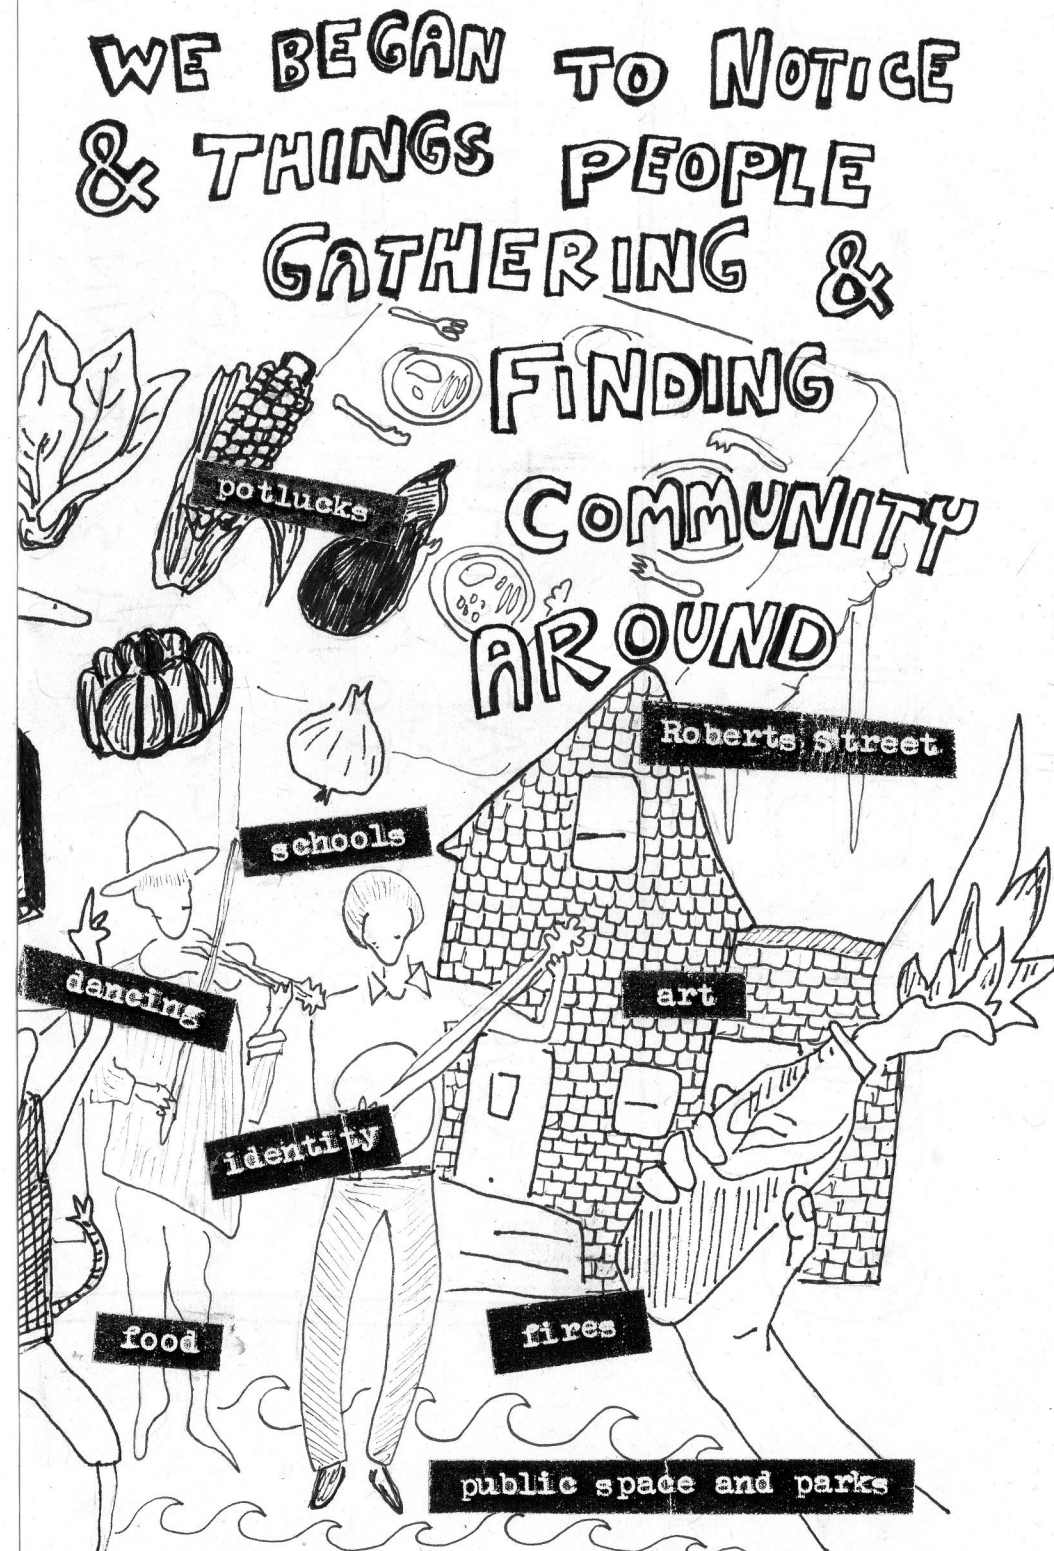 WE BEGAN TO NOTICE
& THINGS PEOPLE
GATHERING &
FINDING
COMMUNITY
AROUND
potlucks
Roberts Street
schools
dancing
art
identity
food
fires
public space and parks